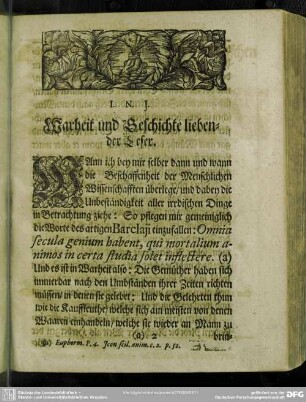 I. N. J.
Warheit und Geschichte lieben-
der Leser.
WAnn ich bey mir selber dann und wann
die Beschaffenheit der Menschlichen
Wissenschafften überlege/ und dabey die
Unbeständigkeit aller irrdischen Dinge
in Betrachtung ziehe: So pflegen mir gemeiniglich
die Worte des artigen Barclaji einzufallen: Omnia
secula genium habent, qui mortalium a-
nimos in certa studia solet inflectere. (a)
Und es ist in Warheit also: Die Gemüther haben sich
immerdar nach den Umbständen ihrer Zeiten richten
müssen/ in denen sie gelebet; Und die Gelehrten thun
wie die Kauffleuthe/ welche sich am meisten von denen
Waaren einhandeln/ welche sie wieder an Mann zu
(a) 2 brin-
(a) Euphorm. P. 4. Icon seu. anim. c. 2. p. 52.